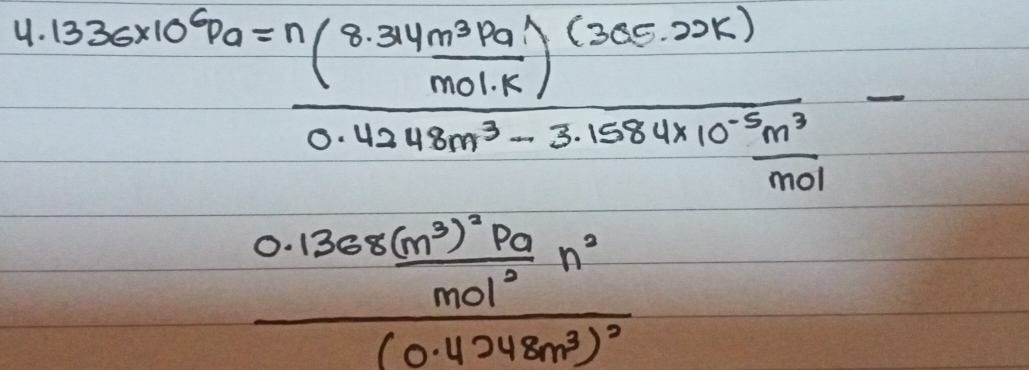 4.1336×10⁶Pa = n (8.314 m³ Pa / mol·K) (305.22K)
0.4248m³ - 3.1584×10⁻⁵ m³ / mol -
0.1368 (m³)² Pa / mol² n²
(0.4248m³)²